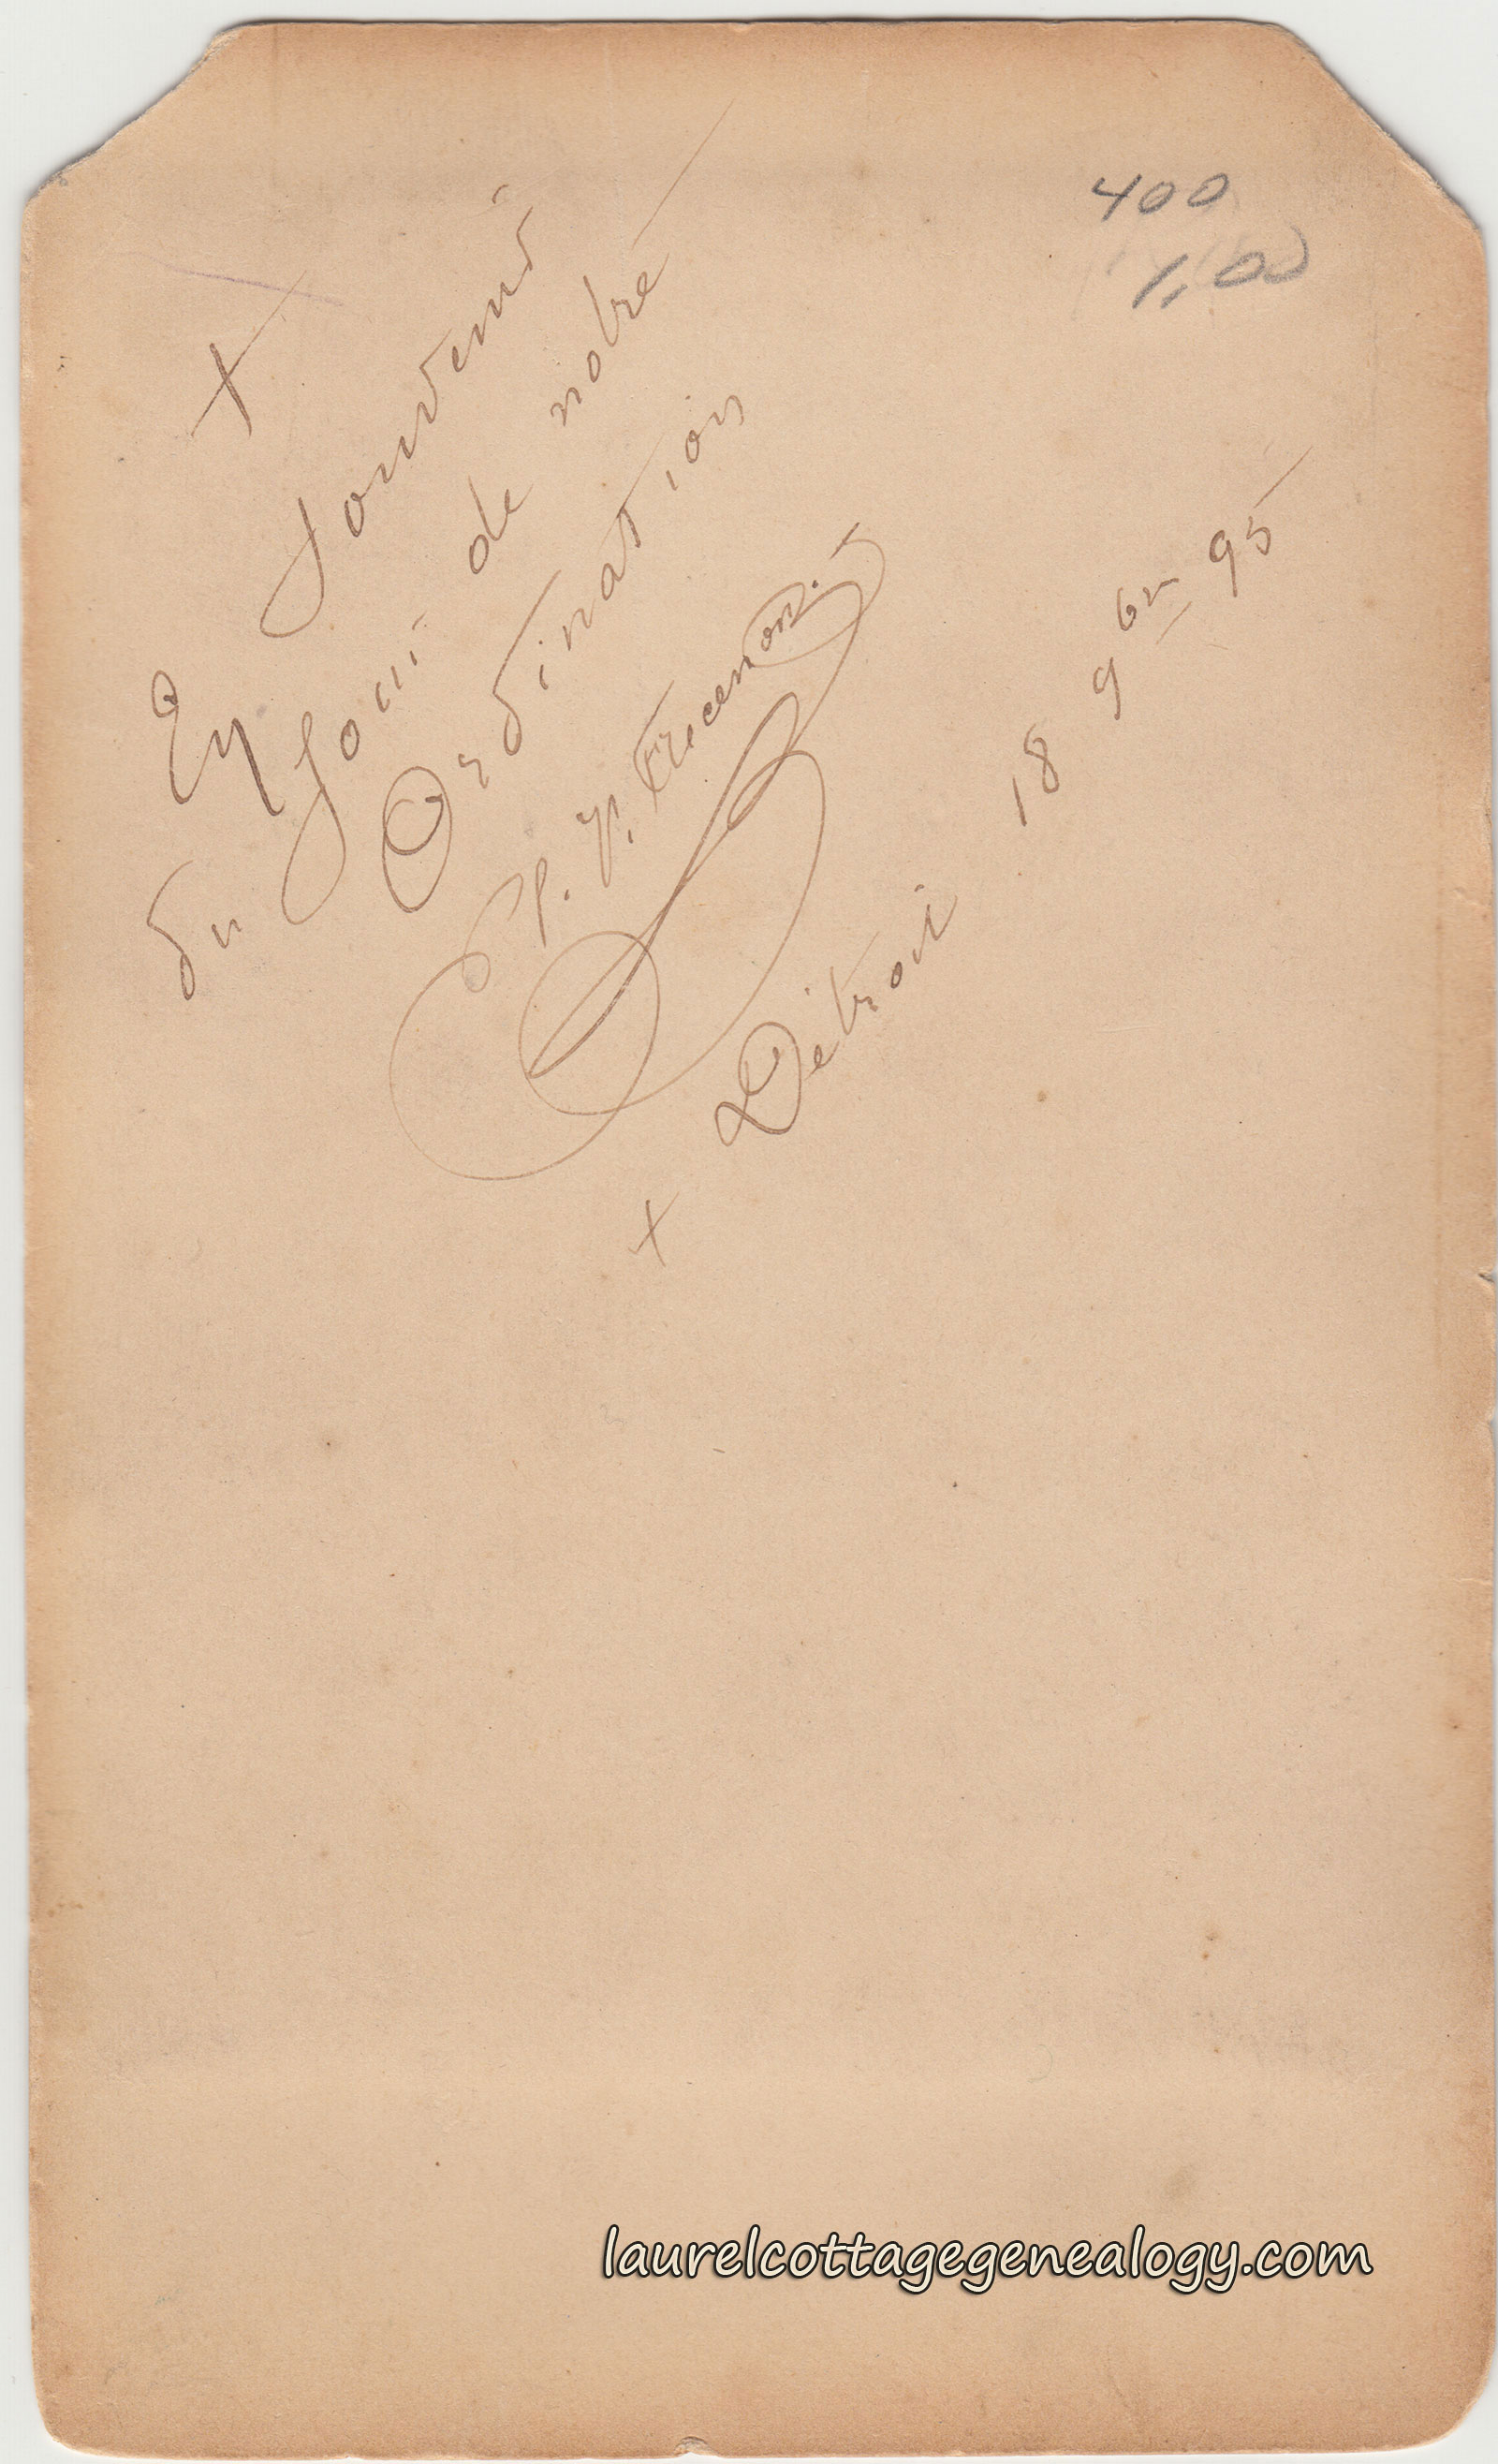 400
1,00
+
En souvenir
du jour de notre
Ordination
+ Détroit 18 9bre 95
laurelcottagegenealogy.com